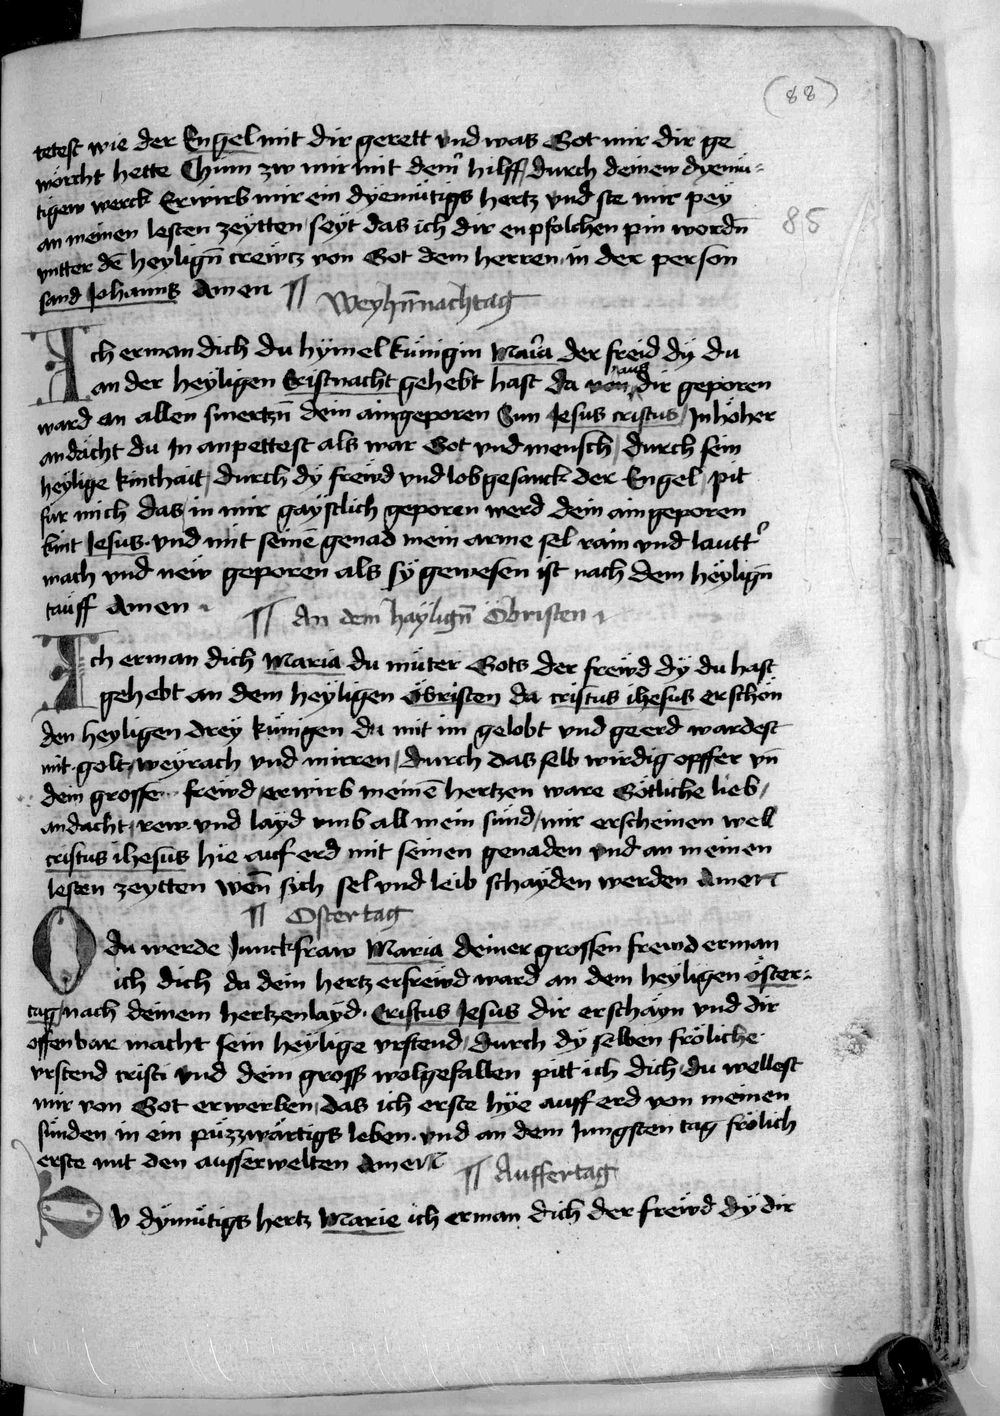 (88)
tetest wie der Engel mit dir gerett vnd was Got mit dir ge
worcht hette Chum zw mir mit dein̄ hilff durch deinew dyemü-
tigew werck Erwirb mir ein dyemütigs hertz vnd ste mir pey
an meinen lesten zeytten seyt das ich dir enpfolchen pin wordn̄
85
vntter dē heylign̄ crewtz von Got dem herren in der person
sand Johanns Amen
¶ Weyhn̄nachtag
Ich erman dich du hymel künigin Maria der freid dy du
an der heyligen Cristnacht gehebt hast da von aus dir geporen
ward an allen smertzn̄ dein aingeporen Sun Jesus cristus / In höher
andacht du In anpettest als war Got vnd mensch / durch sein
heylige kinthait / durch dy frewd vnd lobgesanck der Engel / pit
fur mich das in mir gaystlich geporen werd dein aingeporen
kint Jesus vnd mit seinē genad mein arme sel rain vnd lautt'
mach vnd new geporen als sy gewesen ist nach dem heylign̄
tauff Amen
¶ An dem haylign̄ Obristen
Ich erman dich Maria du müter Gots der frewd dy du hast
gehebt an dem heyligen öbristen da cristus ihesus erschon
den heyligen drey künigen du mit im gelobt vnd geerd wardest
mit golt / weyrach vnd mirren / Durch das selb wirdig opffer vn̄
dem grossen frewd / erwirb meinē hertzen ware Götliche lieb /
andacht / rew vnd layd vmb all mein sünd / mir erscheinen well
cristus ihesus hie auf erd mit seinen genaden vnd an meinen
lesten zeytten wen̄ sich sel vnd leib schayden werden Amen
¶ Ostertag
O du werde Junckfraw Maria deiner grossen frewd erman
ich dich da dein hertz erfrewd ward an dem heyligen öster-
tag / nach deinem hertzenlayd. Cristus Jesus dir erschayn vnd dir
offenbar macht sein heylige vrstend / durch dy selben fröliche
vrstend cristi vnd dein gross wolgefallen pitt ich dich du wellest
mir von Got erwerben / das ich erste hye auff erd von meinen
sünden in ein püzzwärtigs leben. vnd an dem Jungsten tag frölich
erste mit den ausserwelten Amen
¶ Auffertag
Dv dymütigs hertz Marie ich erman dich der frewd dy dir